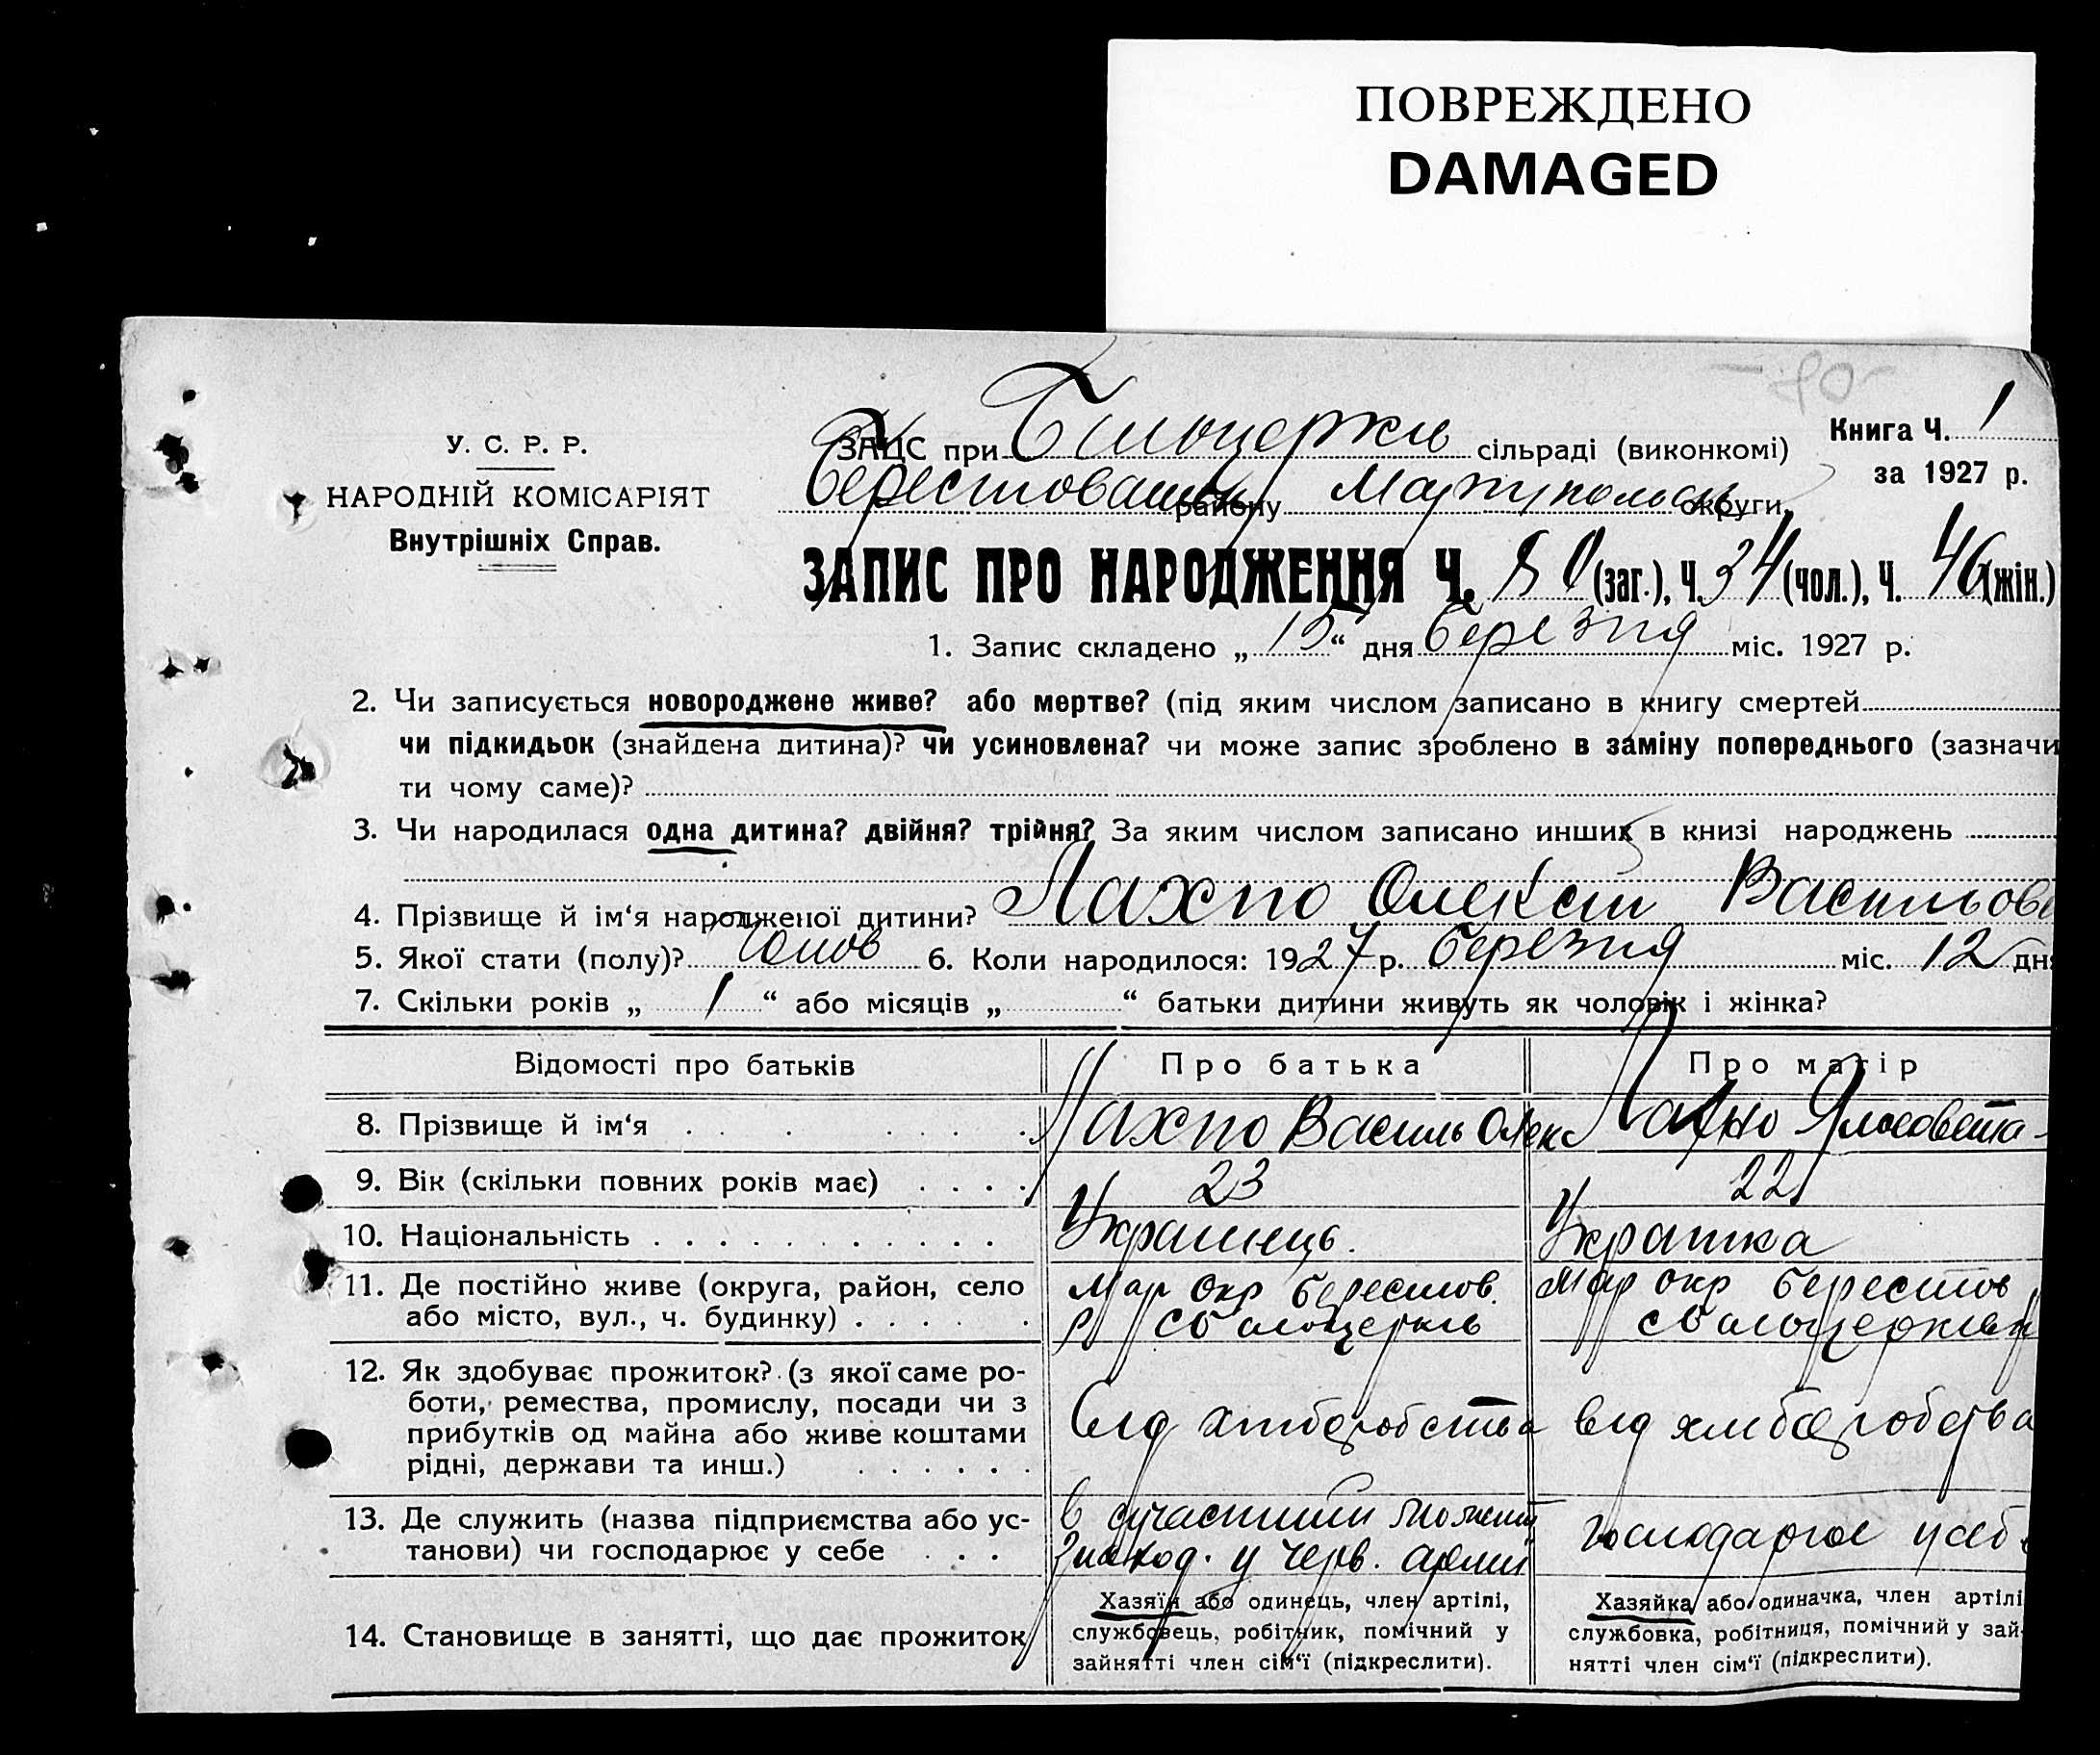 ПОВРЕЖДЕНО
DAMAGED
У. С. Р. Р.
НАРОДНІЙ КОМІСАРІЯТ
Внутрішніх Справ.
ЗАЦС при Білоцерків сільраді (виконкомі)
району округи
Книга Ч. 1
за 1927 р.
ЗАПИС ПРО НАРОДЖЕННЯ Ч. 80 (заг.), Ч. 34 (чол.), Ч. 46 (жін.)
1. Запис складено „ 15 “ дня березня міс. 1927 р.
2. Чи записується новороджене живе? або мертве? (під яким числом записано в книгу смертей
чи підкидьок (знайдена дитина)? чи усиновлена? чи може запис зроблено в заміну попереднього (зазначи
ти чому саме)?
3. Чи народилася одна дитина? двійня? трійня? За яким числом записано инших в книзі народжень
4. Прізвище й ім‘я народженої дитини? Лахно Олексій Васильов
5. Якої стати (полу)? чолов 6. Коли народилося: 1927 р. березня міс. 12 дня
7. Скільки років „ 1 “ або місяців „ “ батьки дитини живуть як чоловік і жінка?
Відомості про батьків Про батька Про матір
8. Прізвище й ім‘я Лахно Василь Олекс Лахно Ялисовета
9. Вік (скільки повних років має) 23 22
10. Національність Українець. Українка
11. Де постійно живе (округа, район, село Мар окр берестов. Мар окр берестов
або місто, вул., ч. будинку)
12. Як здобуває прожиток? (з якої саме ро-
боти, ремества, промислу, посади чи з
прибутків од майна або живе коштами від хліборобства від хліборобства
рідні, держави та инш.)
13. Де служить (назва підприємства або ус- в сучасний момент
танови) чи господарює у себе знаход. у черв. армії господарює у себ
14. Становище в занятті, що дає прожиток
Хазяїн або одинець, член артілі,
службовець, робітник, помічний у
зайнятті член сім‘ї (підкреслити).
Хазяйка або одиначка, член артілі
службовка, робітниця, помічний у зай-
нятті член сім‘ї (підкреслити).